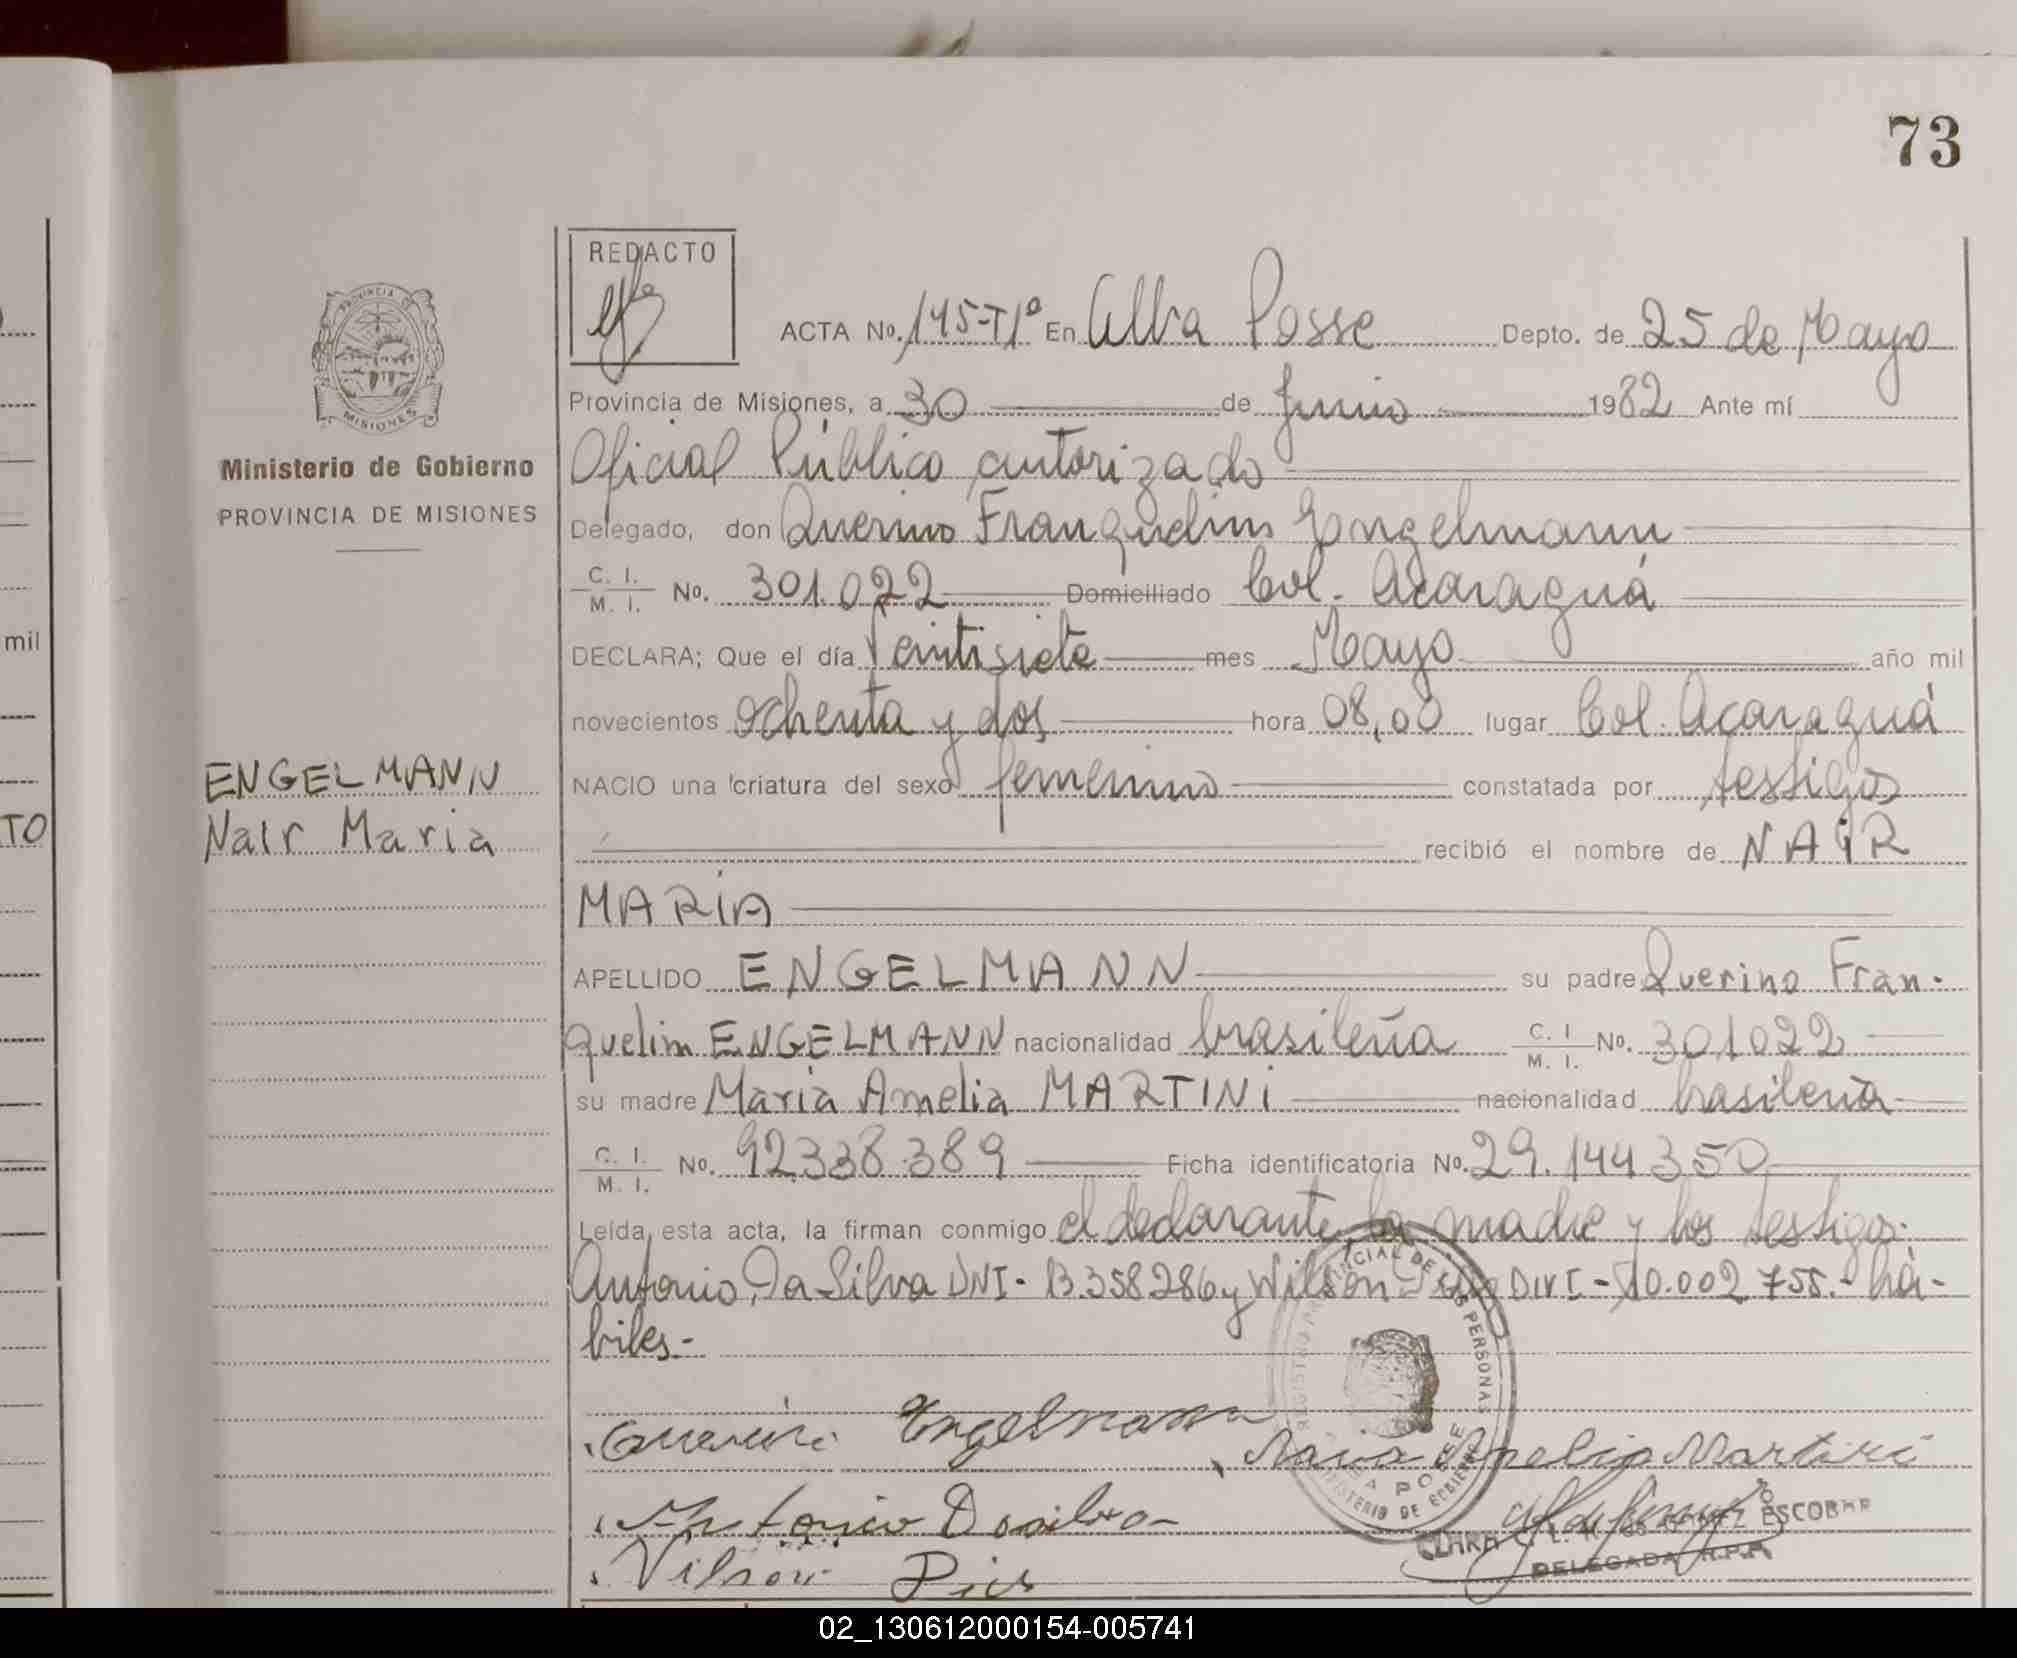 73
REDACTO
PROVINCIA DE
MISIONES
ACTA No. 145-T1º En Alba Posse Depto. de 25 de Mayo
Provincia de Misiones, a 30 de Junio 1982 Ante mí
Ministerio de Gobierno
PROVINCIA DE MISIONES
Oficial Público autorizado
Delegado, don Querino Franquelim Engelmann
C. I.
M. I. No. 301.022 Domiciliado Col. Acaraguá
mil
DECLARA; Que el día Veintisiete mes Mayo año mil
novecientos ochenta y dos hora 08,00 lugar Col. Acaraguá
ENGELMANN
Nair Maria
TO
NACIO una criatura del sexo femenino constatada por testigos
recibió el nombre de NAiR
MARÍA
APELLIDO ENGELMANN su padre Querino Fran-
quelim ENGELMANN nacionalidad brasileña C. I. M. I. No. 301022
su madre Maria Amelia MARTINi nacionalidad brasileña
C. I.
M. I. No. 92.338.389 Ficha identificatoria No. 29.144.350
Leída esta acta, la firman conmigo el declarante, la madre y los testigos:
Antonio Da Silva DNI- 13.358286 y Wilson DNI- 10.002 755.- há-
biles.-
Querino Engelmann
Maria Amelia Martini
Antonio Dasilva
DE GOBIERNO
CLARA ESCOBAR
DELEGADA R.P.P.
Vilson
02_130612000154-005741